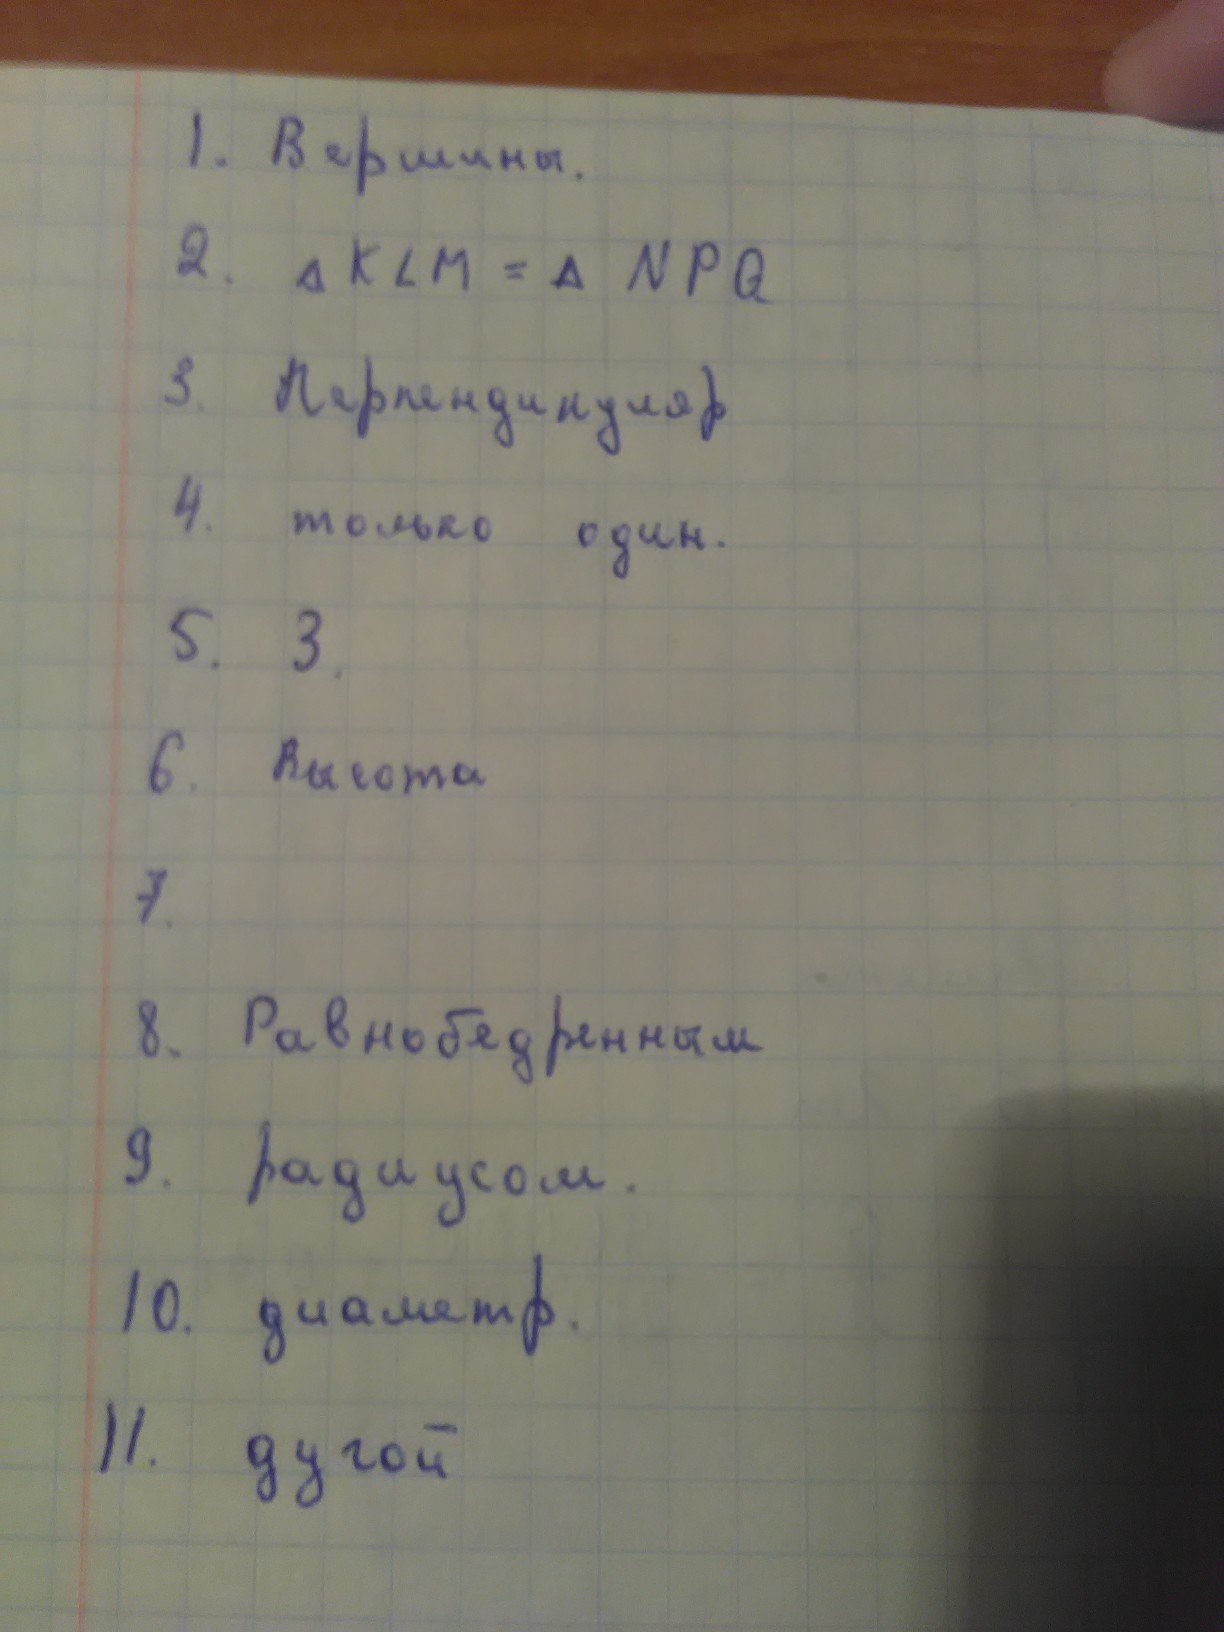 1. Вершины.
2. Δ KLM = Δ NPQ
3. Перпендикуляр
4. только один.
5. 3.
6. Высота
7.
8. Равнобедренным
9. радиусом.
10. диаметр.
11. дугой